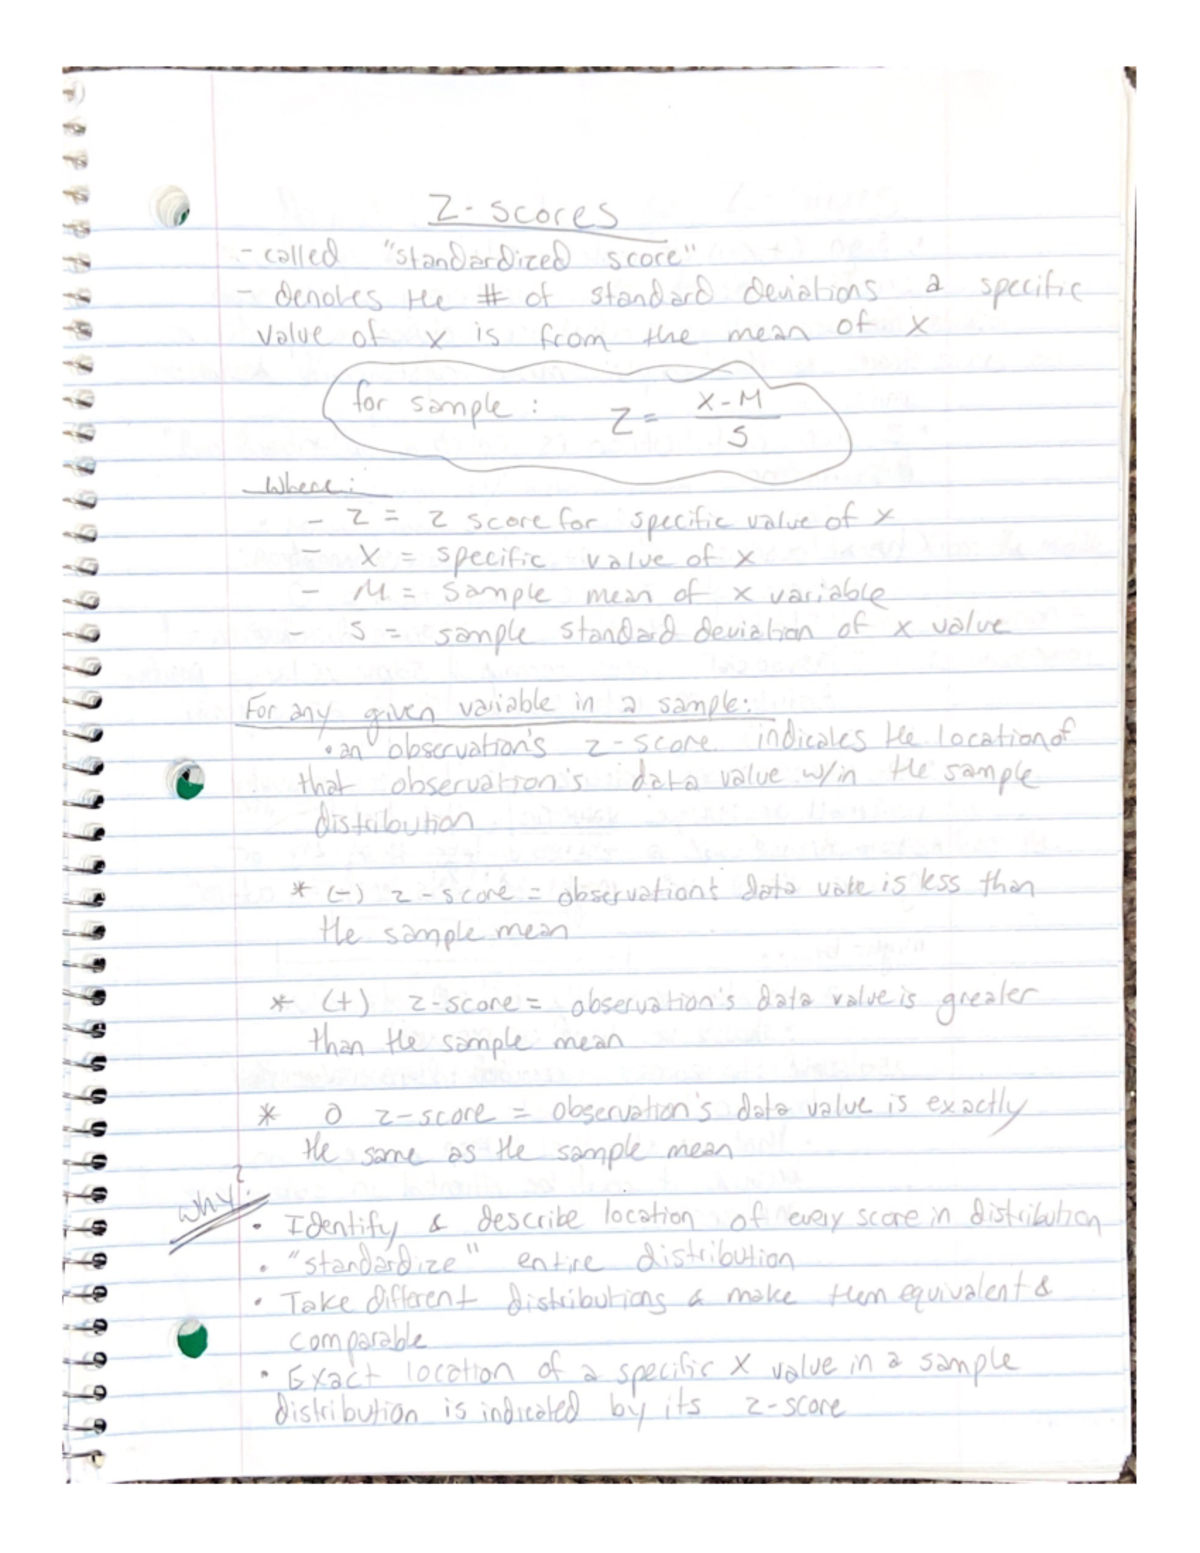 Z-scores
- called "standardized score"
- denotes the # of standard deviations a specific
value of x is from the mean of x
for sample: Z = X-M
S
Where:
- Z = Z score for specific value of x
- X = specific value of x
- M = sample mean of x variable
- S = sample standard deviation of x value
For any given variable in a sample:
• an observation's z-score indicates the location of
that observation's data value w/in the sample
distribution
* (-) z-score = observation's data value is less than
the sample mean
* (+) z-score = observation's data value is greater
than the sample mean
* 0 z-score = observation's data value is exactly
the same as the sample mean
Why?
• Identify & describe location of every score in distribution
• "standardize" entire distribution
• Take different distributions & make them equivalent &
comparable
• Exact location of a specific X value in a sample
distribution is indicated by its z-score